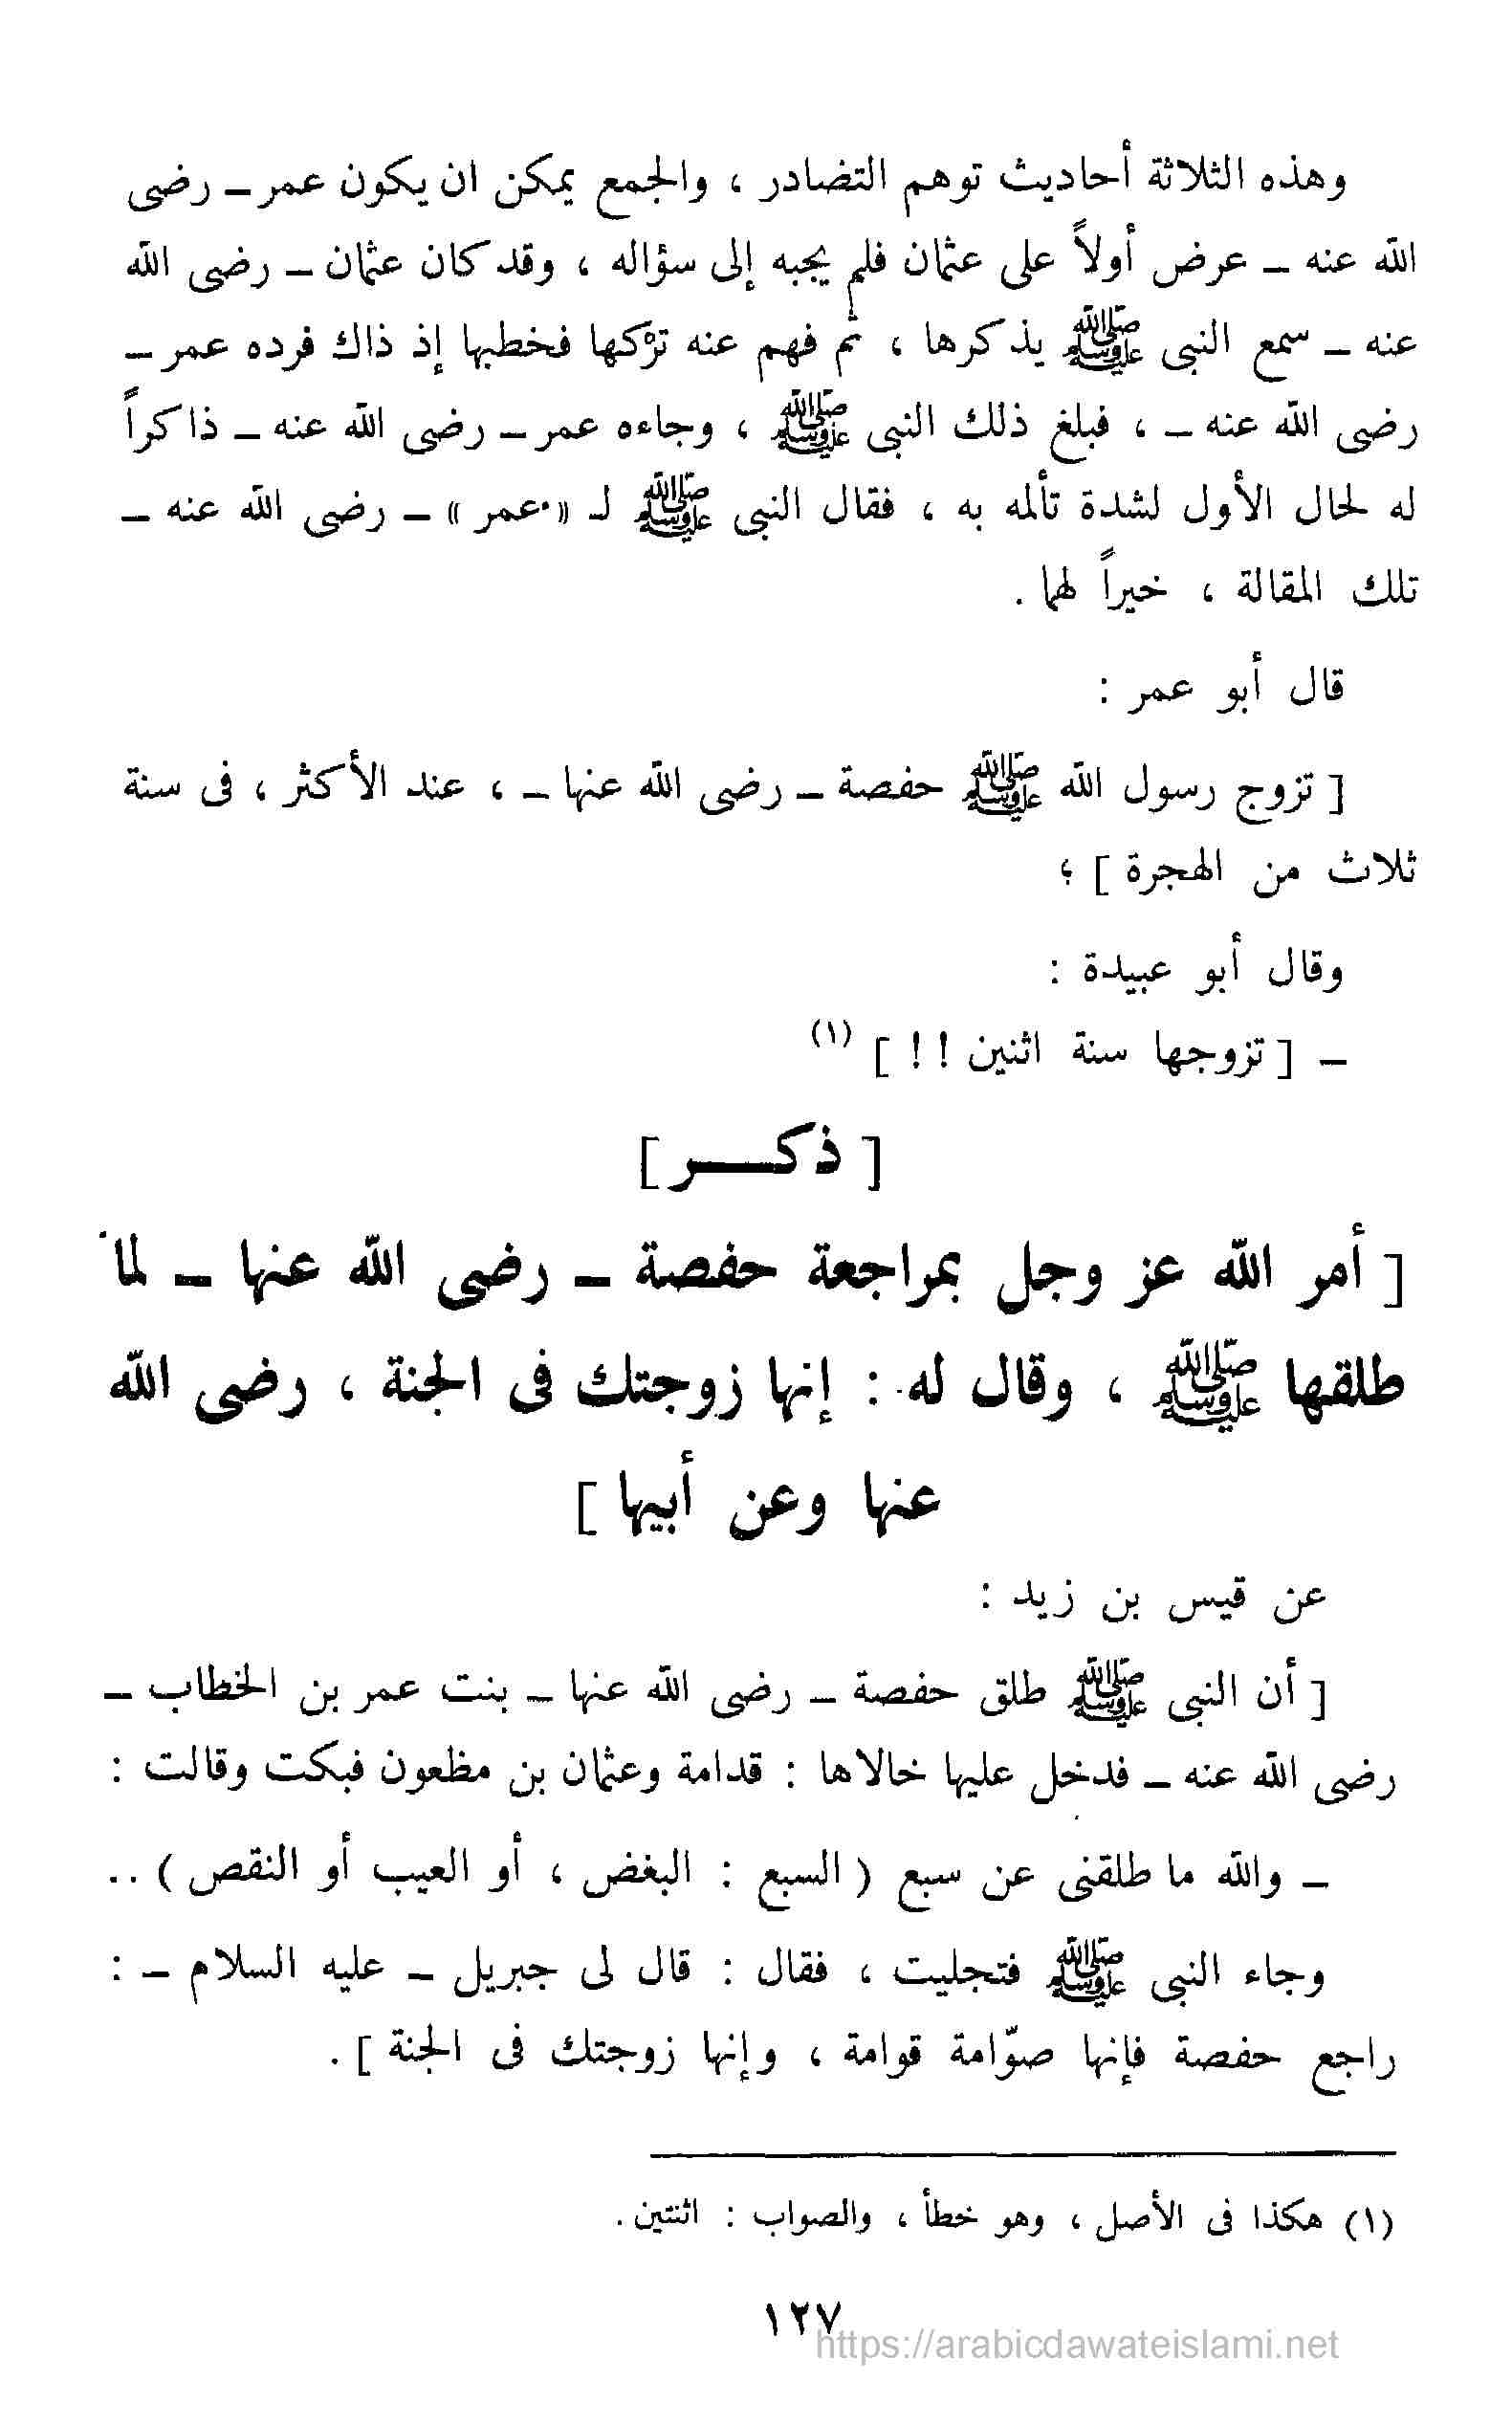 وهذه الثلاثة أحاديث توهم التضادر ، والجمع يمكن ان يكون عمر – رضى
الله عنه – عرض أولاً على عثمان فلم يجبه إلى سؤاله ، وقد كان عثمان – رضى الله
عنه – سمع النبى ﷺ يذكرها ، ثم فهم عنه تركها فخطبها إذ ذاك فرده عمر –
رضى الله عنه – ، فبلغ ذلك النبى ﷺ ، وجاءه عمر – رضى الله عنه – ذاكراً
له لحال الأول لشدة تألمه به ، فقال النبى ﷺ لـ « عمر » – رضى الله عنه –
تلك المقالة ، خيراً لهما .
قال أبو عمر :
[ تزوج رسول الله ﷺ حفصة – رضى الله عنها – ، عند الأكثر ، فى سنة
ثلاث من الهجرة ] ؛
وقال أبو عبيدة :
– [ تزوجها سنة اثنين ! ! ] (١)
[ ذكــــر ]
[ أمر الله عز وجل بمراجعة حفصة – رضى الله عنها – لما
طلقها ﷺ ، وقال له : إنها زوجتك فى الجنة ، رضى الله
عنها وعن أبيها ]
عن قيس بن زيد :
[ أن النبى ﷺ طلق حفصة – رضى الله عنها – بنت عمر بن الخطاب –
رضى الله عنه – فدخل عليها خالاها : قدامة وعثمان بن مظعون فبكت وقالت :
– والله ما طلقنى عن سبع ( السبع : البغض ، أو العيب أو النقص ) ..
وجاء النبى ﷺ فتجليت ، فقال : قال لى جبريل – عليه السلام – :
راجع حفصة فإنها صوّامة قوامة ، وإنها زوجتك فى الجنة ] .
(١) هكذا فى الأصل ، وهو خطأ ، والصواب : اثنتين .
١٢٧
https://arabicdawateislami.net